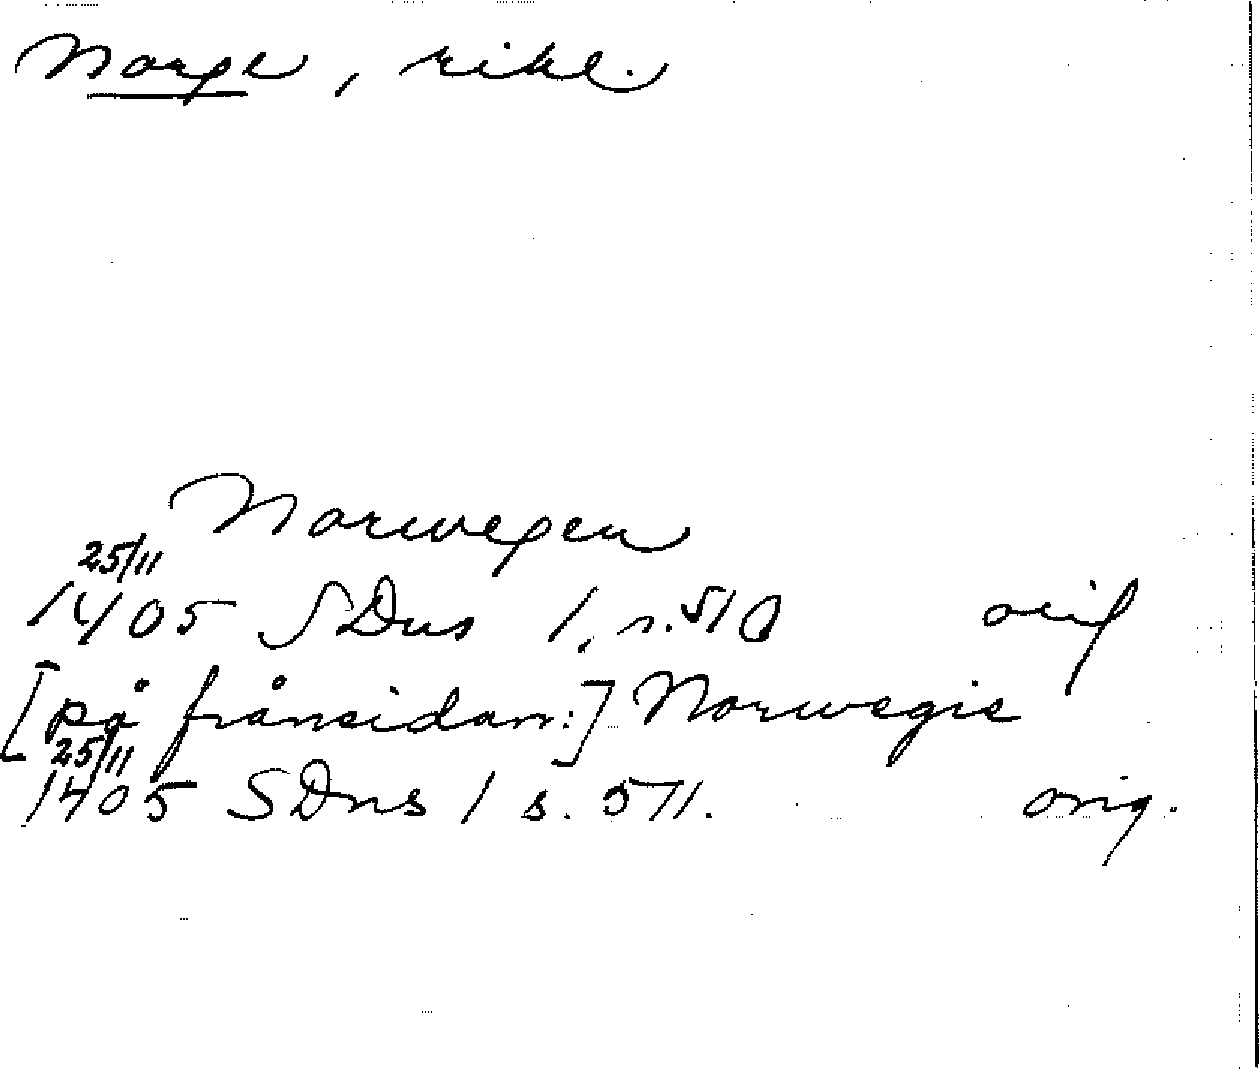 Norge, rike.
Norwegen
25/11
1405 SDns 1, s. 510 orig
[på frånsidan:] Norwegie
25/11
1405 SDns 1 s. 511. orig.